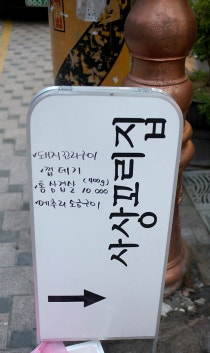 사상꼬리집
돼지꼬리구이
껍데기
통삼겹살 (400g) 10.000
메추리 소금구이